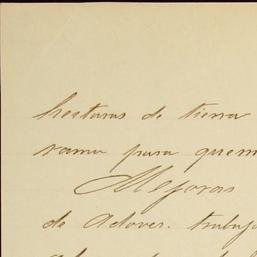 hectaras de tierra
rama para quem
Mejoras
de Adoves. trabajo